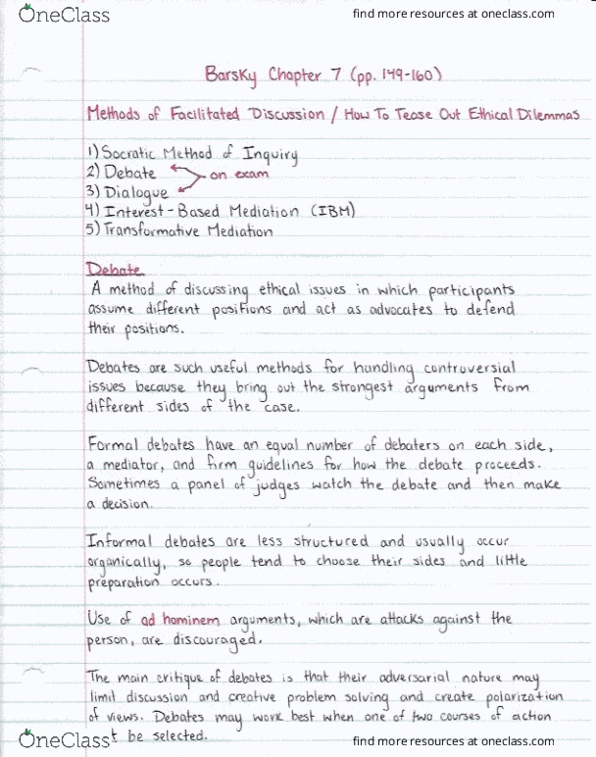 OneClass
find more resources at oneclass.com
Barsky Chapter 7 (pp. 149-160)
Methods of Facilitated Discussion / How To Tease Out Ethical Dilemmas
1) Socratic Method of Inquiry
2) Debate
on exam
3) Dialogue
4) Interest-Based Mediation (IBM)
5) Transformative Mediation
Debate
A method of discussing ethical issues in which participants
assume different positions and act as advocates to defend
their positions.
Debates are such useful methods for handling controversial
issues because they bring out the strongest arguments from
different sides of the case.
Formal debates have an equal number of debaters on each side,
a mediator, and firm guidelines for how the debate proceeds.
Sometimes a panel of judges watch the debate and then make
a decision.
Informal debates are less structured and usually occur
organically, so people tend to choose their sides and little
preparation occurs.
Use of ad hominem arguments, which are attacks against the
person, are discouraged.
The main critique of debates is that their adversarial nature may
limit discussion and creative problem solving and create polarization
of views. Debates may work best when one of two courses of action
be selected.
OneClass
find more resources at oneclass.com